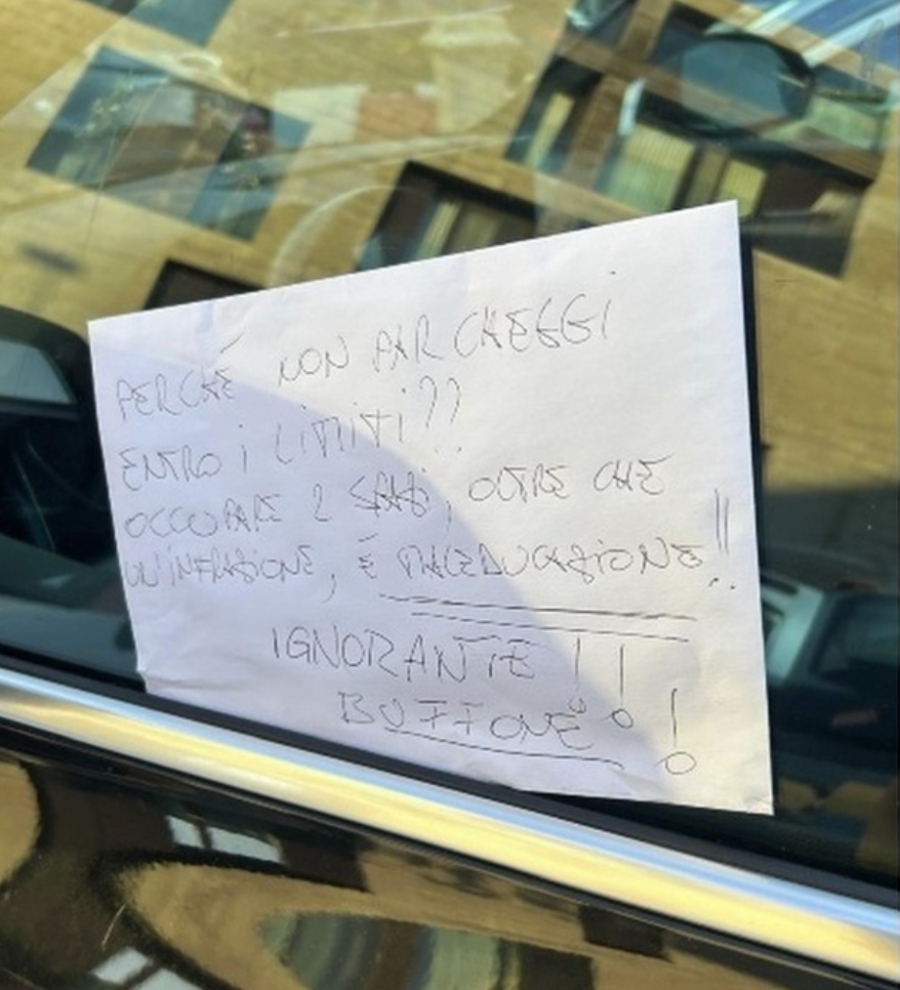 PERCHÉ NON PARCHEGGI
ENTRO i LiMiTi??
OCCUPARE 2 SPAZi, OLTRE CHE
UN'INFRAZIONE, É MALEDUCAZIONE!!
IGNORANTE!!
BUFFONE!